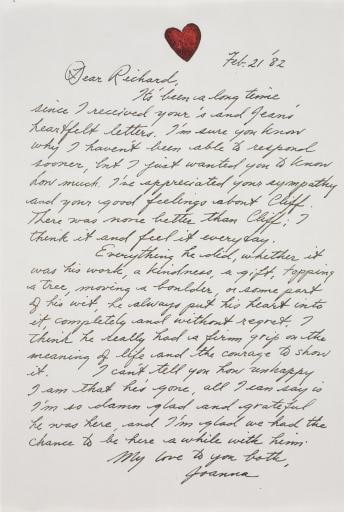 Feb. 21 '82
Dear Richard,
It's been a long time
since I received your's and Jean's
heartfelt letters. I'm sure you know
why I haven't been able to respond
sooner, but I just wanted you to know
how much I've appreciated your sympathy
and your good feelings about Cliff.
There was none better than Cliff; I
think it and feel it everyday.
Everything he did, whether it
was his work, a kindness, a gift, topping
a tree, moving a boulder, or some part
of his wit, he always put his heart into
it, completely and without regret. I
think he really had a firm grip on the
meaning of life and the courage to show
it. I can't tell you how unhappy
I am that he's gone, all I can say is
I'm so damn glad and grateful
he was here, and I'm glad we had the
chance to be here a while with him.
My love to you both,
Joanna